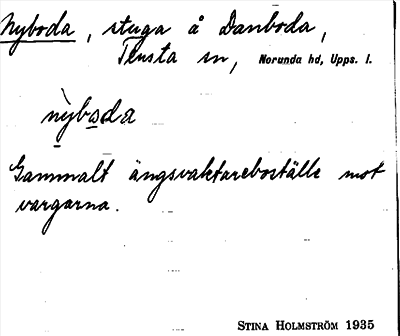 Nyboda, stuga å Danboda,
Tensta sn, Norunda hd, Upps. l.
nyboda
Gammalt ängsvaktareboställe mot
vargarna.
STINA HOLMSTRÖM 1935